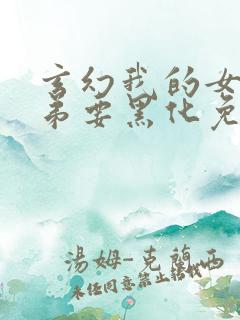 玄幻我的女
弟要黑化免
湯姆-克蘭西
未经同意禁止转载